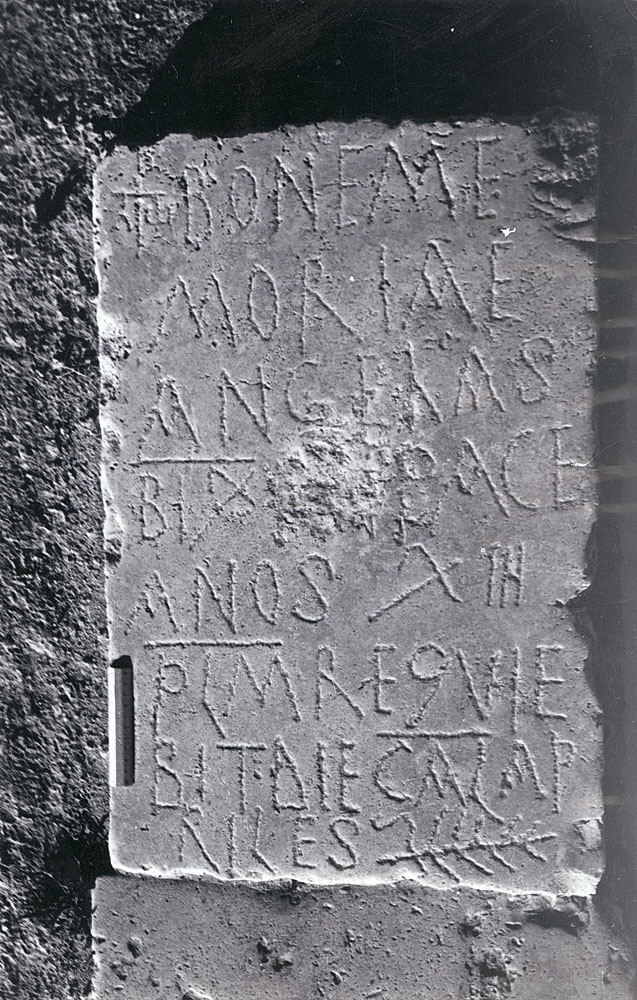 BONE ME
MORIAE
BIX PACE
ANOS XIII
PLM REQVIE
BIT DIE CAL AP
RILES